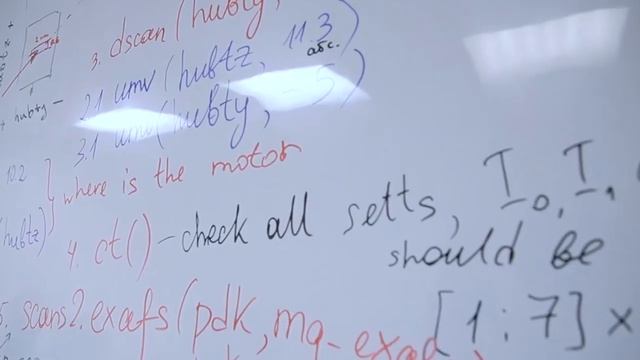 3. dscan(hubty,
2.1 umv(hubtz, 11.3)
абс.
3.1 umv(hubty, -5)
hubty -
10.2
where is the motor
(hubtz)
4. ct() - check all setts, I0, I1
should be
5. scans2.exafs(pdk, mg_exad
[1:7] x